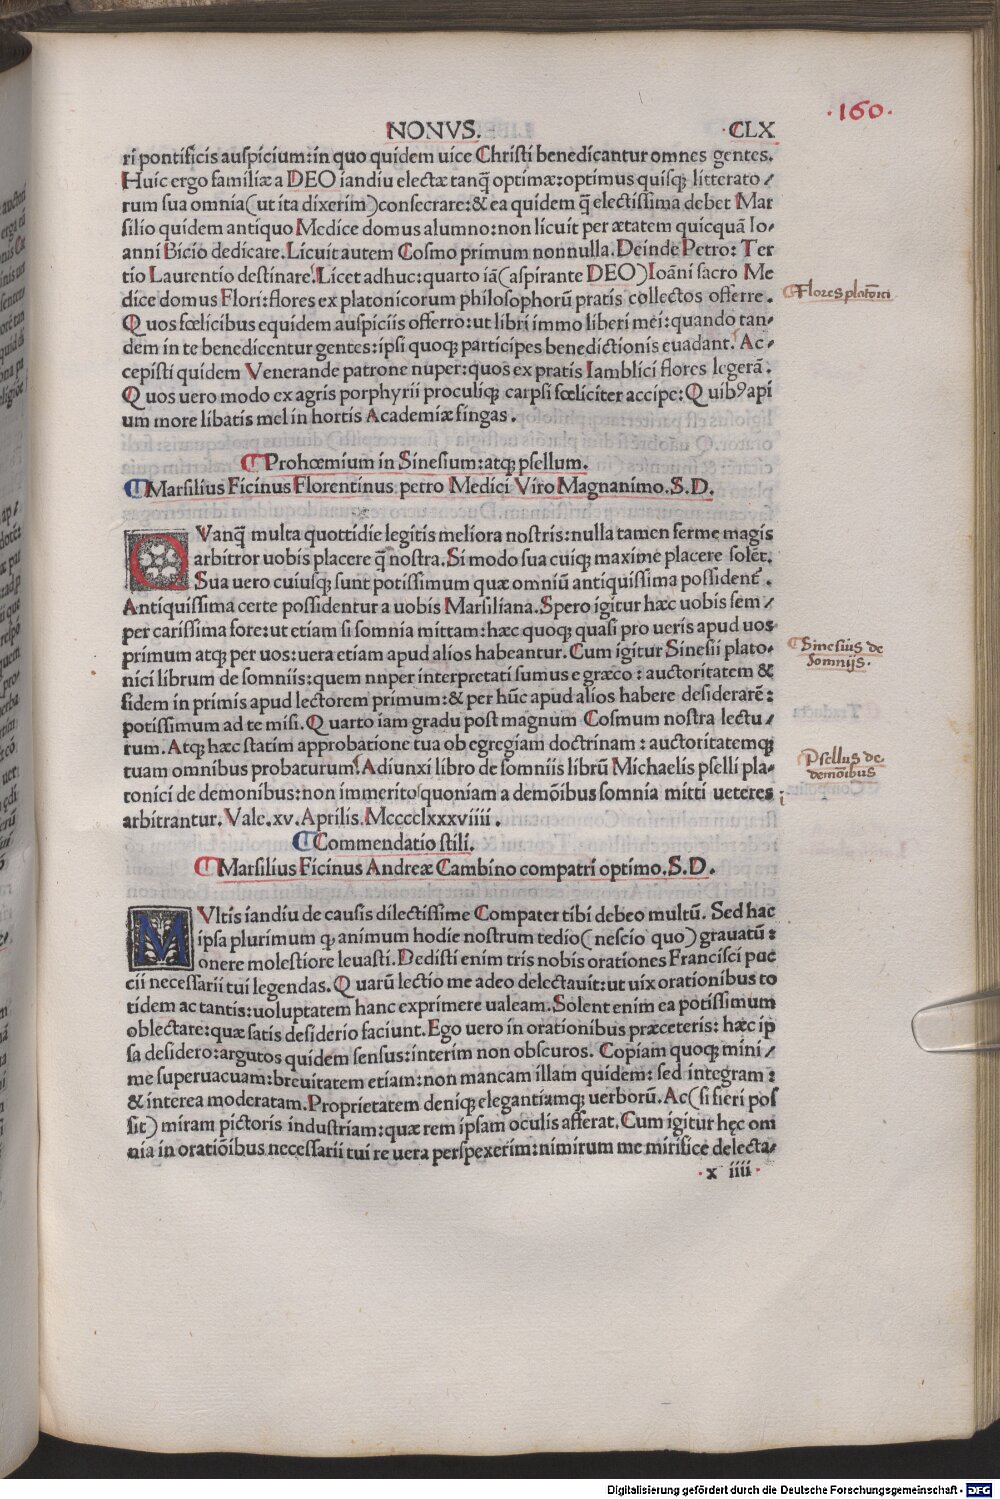 ·160·
NONVS. ·CLX
ri pontificis auſpicium:in quo quidem uice Chriſti benedicantur omnes gentes.
Huic ergo familiæ a DEO iandiu electæ tanq̃ optimæ:optimus quiſq; litterato/
rum ſua omnia(ut ita dixerim)conſecrare:& ea quidem q̃ electiſſima debet Mar
ſilio quidem antiquo Medice domus alumno:non licuit per ætatem quicquã Io-
anni Bicio dedicare.Licuit autem Coſmo primum nonnulla.Deinde Petro: Ter
tio Laurentio deſtinare.Licet adhuc:quarto iã(aſpirante DEO)Ioãni ſacro Me
dice domus Flori:flores ex platonicorum philoſophorũ pratis collectos offerre.
Quos fœlicibus equidem auſpiciis offerro:ut libri immo liberi mei:quando tan-
dem in te benedicentur gentes:ipſi quoq; participes benedictionis euadant. Ac-
cepiſti quidem Venerande patrone nuper:quos ex pratis Iamblici flores legerã.
Quos uero modo ex agris porphyrii proculiq; carpſi fœliciter accipe:Quibꝰ api
um more libatis mel in hortis Academiæ fingas.
Flores platonici
¶Prohœmium in Sineſium:atq; pſellum.
¶Marſilius Ficinus Florentinus petro Medici Viro Magnanimo.S.D.
QVanq̃ multa quottidie legitis meliora noſtris:nulla tamen ferme magis
arbitror uobis placere q̃ noſtra.Si modo ſua cuiq; maxime placere ſolẽt.
Sua uero cuiuſq; ſunt potiſſimum quæ omniũ antiquiſſima poſſident̃.
Antiquiſſima certe poſſidentur a uobis Marſiliana.Spero igitur hæc uobis ſem/
per cariſſima fore:ut etiam ſi ſomnia mittam:hæc quoq; quaſi pro ueris apud uos
primum atq; per uos:uera etiam apud alios habeantur.Cum igitur Sineſii plato-
nici librum de ſomniis:quem nnper interpretati ſumus e græco: auctoritatem &
fidem in primis apud lectorem primum:& per hũc apud alios habere deſiderarẽ:
potiſſimum ad te miſi.Quarto iam gradu poſt magnum Coſmum noſtra lectu/
rum.Atq; hæc ſtatim approbatione tua ob egregiam doctrinam: auctoritatemq;
tuam omnibus probaturum.Adiunxi libro de ſomniis librũ Michaelis pſelli pla-
tonici de demonibus:non immerito quoniam a demõibus ſomnia mitti ueteres
arbitrantur.Vale.xv.Aprilis.Mcccclxxxviiii.
Sinesius de
somnijs.
Psellus de
demõibus
¶Commendatio ſtili.
¶Marſilius Ficinus Andreæ Cambino compatri optimo.S.D.
MVltis iandiu de cauſis dilectiſſime Compater tibi debeo multũ. Sed hac
ipſa plurimum q; animum hodie noſtrum tedio(neſcio quo)grauatũ:
onere moleſtiore leuaſti.Dediſti enim tris nobis orationes Franciſci puc
cii neceſſarii tui legendas.Quarũ lectio me adeo delectauit:ut uix orationibus to
tidem ac tantis:uoluptatem hanc exprimere ualeam.Solent enim ea potiſſimum
oblectare:quæ ſatis deſiderio faciunt.Ego uero in orationibus præceteris: hæc ip
ſa deſidero:argutos quidem ſenſus:interim non obſcuros. Copiam quoq; mini/
me ſuperuacuam:breuitatem etiam:non mancam illam quidem: ſed integram:
& interea moderatam.Proprietatem deniq; elegantiamq; uerborũ.Ac(ſi fieri poſ
ſit)miram pictoris induſtriam:quæ rem ipſam oculis afferat.Cum igitur hęc om
nia in oratiõibus neceſſarii tui re uera perſpexerim:nimirum me mirifice delecta-
·x iiii·
Digitalisierung gefördert durch die Deutsche Forschungsgemeinschaft - DFG